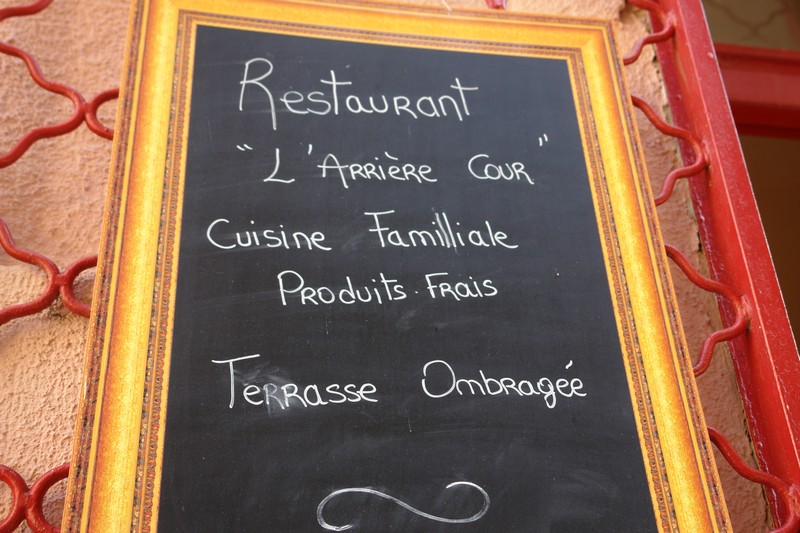 Restaurant
"L'Arrière Cour"
Cuisine Familliale
Produits Frais
Terrasse Ombragée